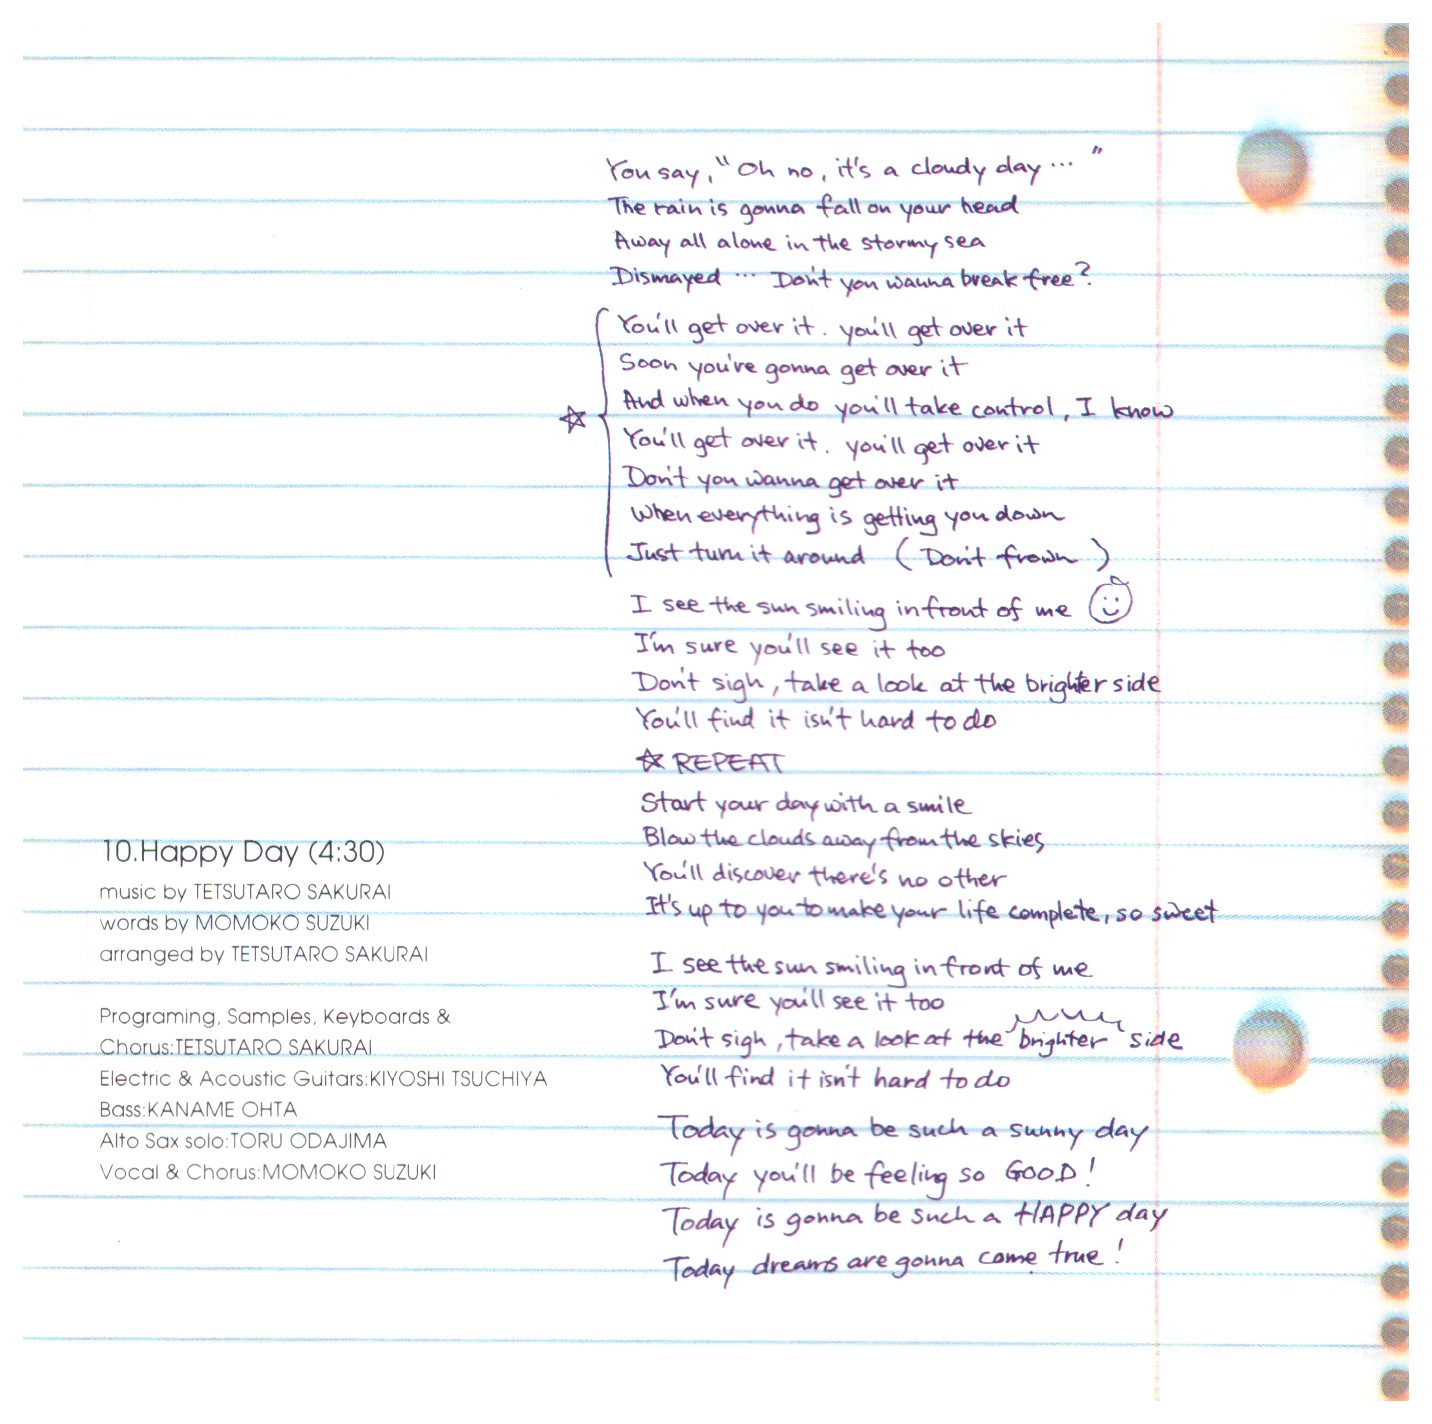 You say, "Oh no, it's a cloudy day ... "
The rain is gonna fall on your head
Away all alone in the stormy sea
Dismayed ... Don't you wanna break free?
You'll get over it. you'll get over it
Soon you're gonna get over it
And when you do you'll take control, I know
You'll get over it. you'll get over it
Don't you wanna get over it
When everything is getting you down
Just turn it around (Don't frown)
I see the sun smiling in front of me
I'm sure you'll see it too
Don't sigh, take a look at the brighter side
You'll find it isn't hard to do
☆ REPEAT
Start your day with a smile
Blow the clouds away from the skies
You'll discover there's no other
It's up to you to make your life complete, so sweet
I see the sun smiling in front of me
I'm sure you'll see it too
Don't sigh, take a look at the brighter side
You'll find it isn't hard to do
Today is gonna be such a sunny day
Today you'll be feeling so GOOD!
Today is gonna be such a HAPPY day
Today dreams are gonna come true!
10.Happy Day (4:30)
music by TETSUTARO SAKURAI
words by MOMOKO SUZUKI
arranged by TETSUTARO SAKURAI
Programing, Samples, Keyboards &
Chorus:TETSUTARO SAKURAI
Electric & Acoustic Guitars:KIYOSHI TSUCHIYA
Bass:KANAME OHTA
Alto Sax solo:TORU ODAJIMA
Vocal & Chorus:MOMOKO SUZUKI